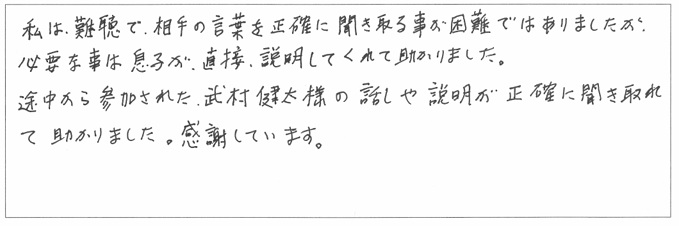 私は、難聴で、相手の言葉を正確に聞き取る事が困難ではありましたが、
必要な事は息子が、直接、説明してくれて助かりました。
途中から参加された、武村健太様の話しや説明が正確に聞き取れ
て助かりました。感謝しています。